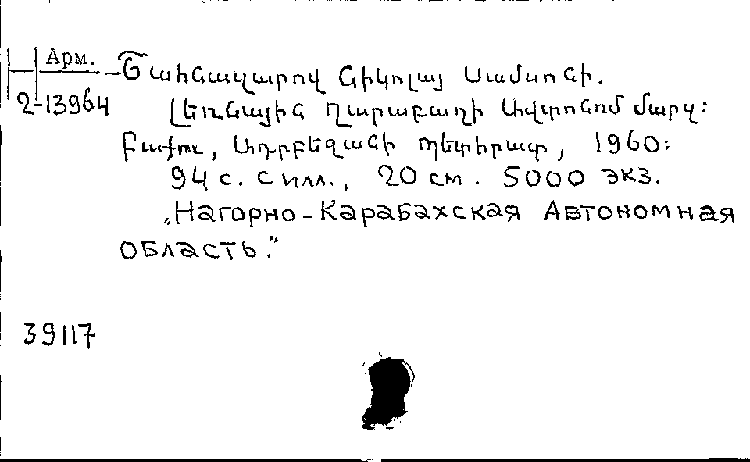 Арм.
Շահնազարով Նիկոլայ Սամսոնի.
2-13964 Լեռնային Ղարաբաղի Ավտոնոմ մարզ:
Բաքու, Ադրբեջանի պետհրատ, 1960:
94 с. с илл., 20 см. 5000 экз.
„Нагорно-Карабахская Автономная
область."
39117